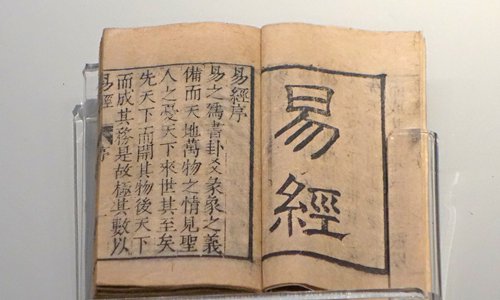 易經
易經序
易之爲書卦爻彖象之義
備而天地萬物之情見聖
人之憂天下來世其至矣
先天下而開其物後天下
而成其務是故極其數以
易經
序